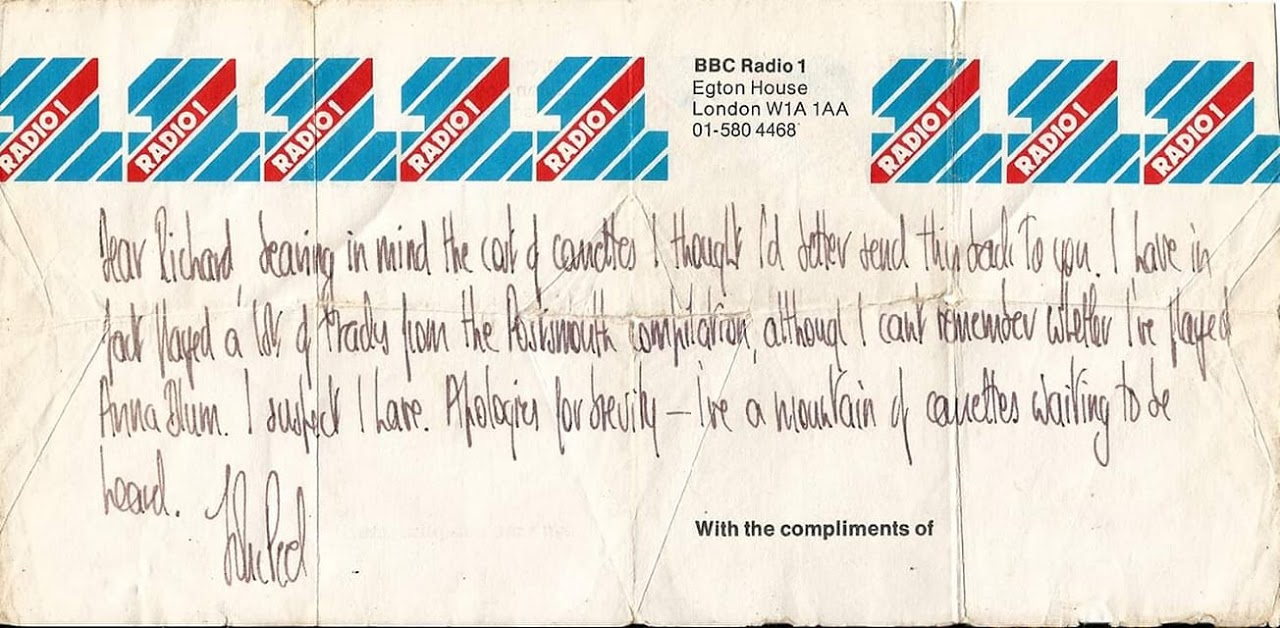 RADIO 1 RADIO 1 RADIO 1 RADIO 1 RADIO 1 RADIO 1 RADIO 1 RADIO 1
BBC Radio 1
Egton House
London W1A 1AA
01-580 4468
Dear Richard, bearing in mind the cost of cassettes I thought I'd better send this back to you. I have in
fact played a lot of tracks from the Portsmouth compilation, although I can't remember whether I've played
Anna Blum. I suspect I have. Apologies for brevity – I've a mountain of cassettes waiting to be
heard.
John Peel
With the compliments of